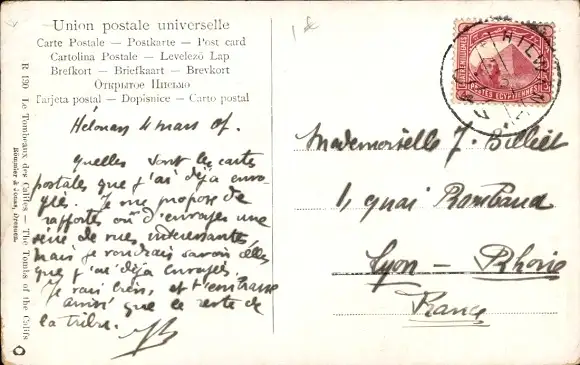 Union postale universelle
Carte Postale — Postkarte — Post card
Cartolina Postale — Levelező Lap
Brefkort — Briefkaart — Brevkort
Открытое Письмо
Tarjeta postal — Dopisnice — Carto postal
R 130 Le Tombeaux des Califes — The Tombs of the Califs
POSTES EGYPTIENNES
Hélouan 4 mars 07.
Quelles sont les cartes
postales que j'ai déjà envo-
yées. Je me propose de
rapporter ou d'envoyer une
série de vues intéressantes,
mais je voudrais savoir elles
que j'ai déjà envoyés.
Je vais bien, et
ainsi que le reste de
la tribu.
JB
Mademoiselle J. Billiet
1, quai Rambaud
Lyon — Rhône
France